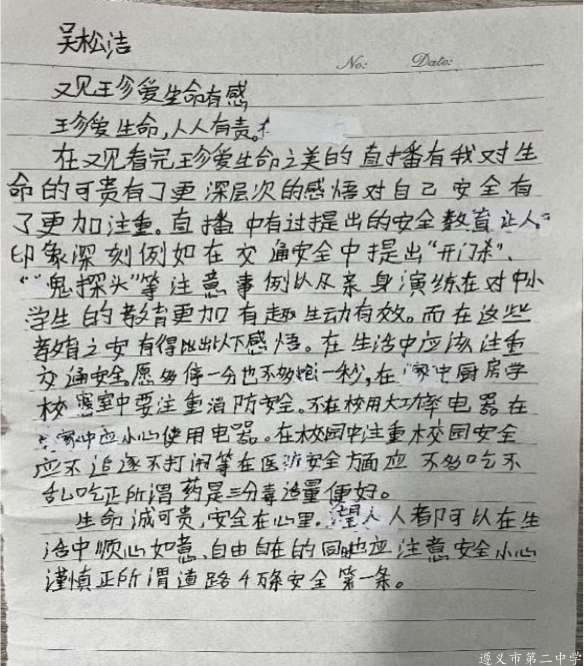 吴松洁
No: Date:
又见珍爱生命有感
珍爱生命,人人有责。
在又见看完珍爱生命之美的直播有我对生
命的可贵有了更深层次的感悟对自己安全有
了更加注重。直播中有过提出的安全教育让人
印象深刻例如在交通安全中提出“开门杀”、
“鬼探头”等注意事例以及亲身演练在对中小
学生的教育更加有趣生动有效。而在这些
教育之安有得比出以下感悟。在生活中应该注重
交通安全愿多停一分也不多抢一秒,在家中厨房学
校寝室中要注重消防安全。不在校用大功率电器在
家中应小心使用电器。在校园中注重校园安全
应不追逐不打闹等在医防安全方面应不多吃不
乱吃正所谓药是三分毒适量便好。
生命诚可贵,安全在心里。望人人者阿以在生
活中顺心如意、自由自在的同时也应注意安全小心
谨慎正所谓道路千万条安全第一条。
遵义市第二中学